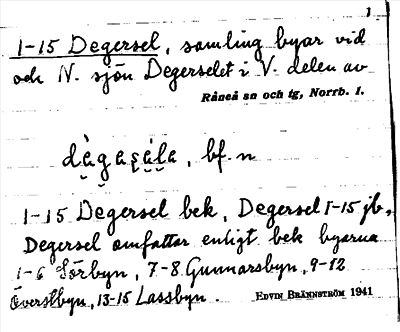 1
1-15 Degersel, samling byar vid
och N. sjön Degerselet i V. delen av
Råneå sn och tg, Norrb. l.
dàgasǻla, bf. n
1-15 Degersel bek, Degersel 1-15 jb,
Degersel omfattar enligt bek byarna
1-6 Sörbyn, 7-8 Gunnarsbyn, 9-12
Överstbyn, 13-15 Lassbyn.
EDVIN BRÄNNSTRÖM 1941